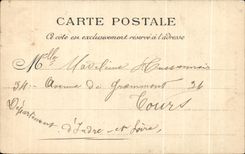 CARTE POSTALE
Ce côté est exclusivement réservé à l'adresse
Mlle Madeleine
34 Avenue de Grammont 34
Tours
Département d'Indre-et-Loire